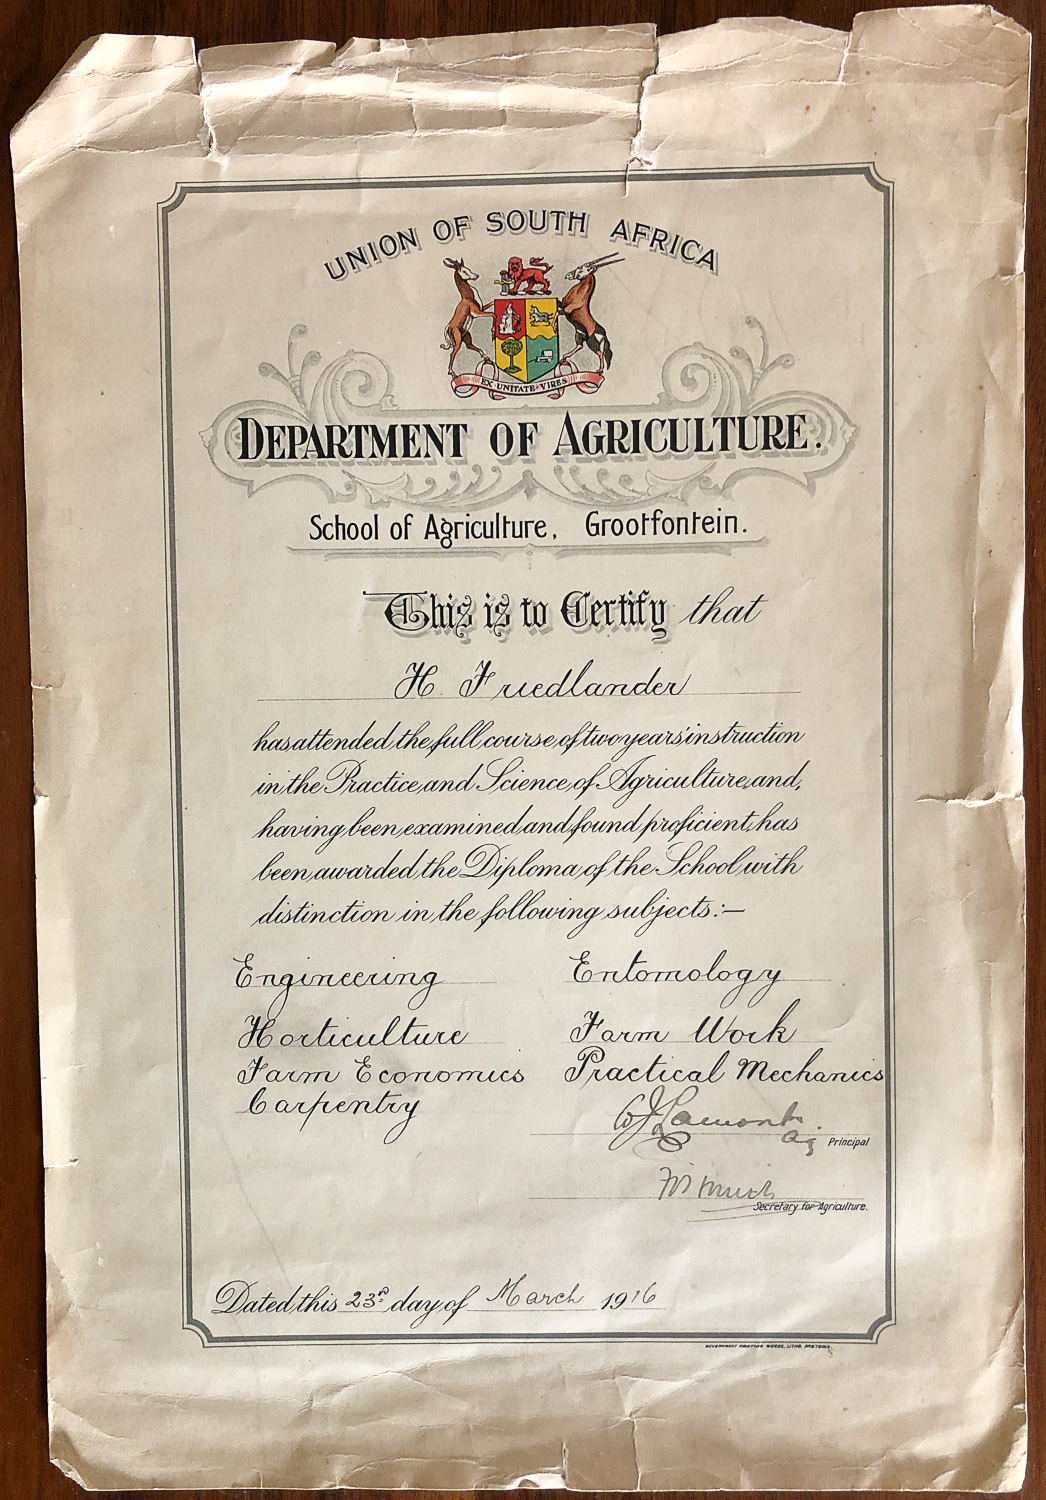 UNION OF SOUTH AFRICA
EX UNITATE VIRES
DEPARTMENT OF AGRICULTURE.
School of Agriculture, Grootfontein.
This is to Certify that
H. Friedlander
has attended the full course of two years' instruction
in the Practice and Science of Agriculture and,
having been examined and found proficient, has
been awarded the Diploma of the School with
distinction in the following subjects:—
Engineering Entomology
Horticulture Farm Work
Farm Economics Practical Mechanics
Carpentry
Ag Principal
Secretary for Agriculture.
Dated this 23rd day of March 1916
GOVERNMENT PRINTING WORKS, LITHO, PRETORIA.